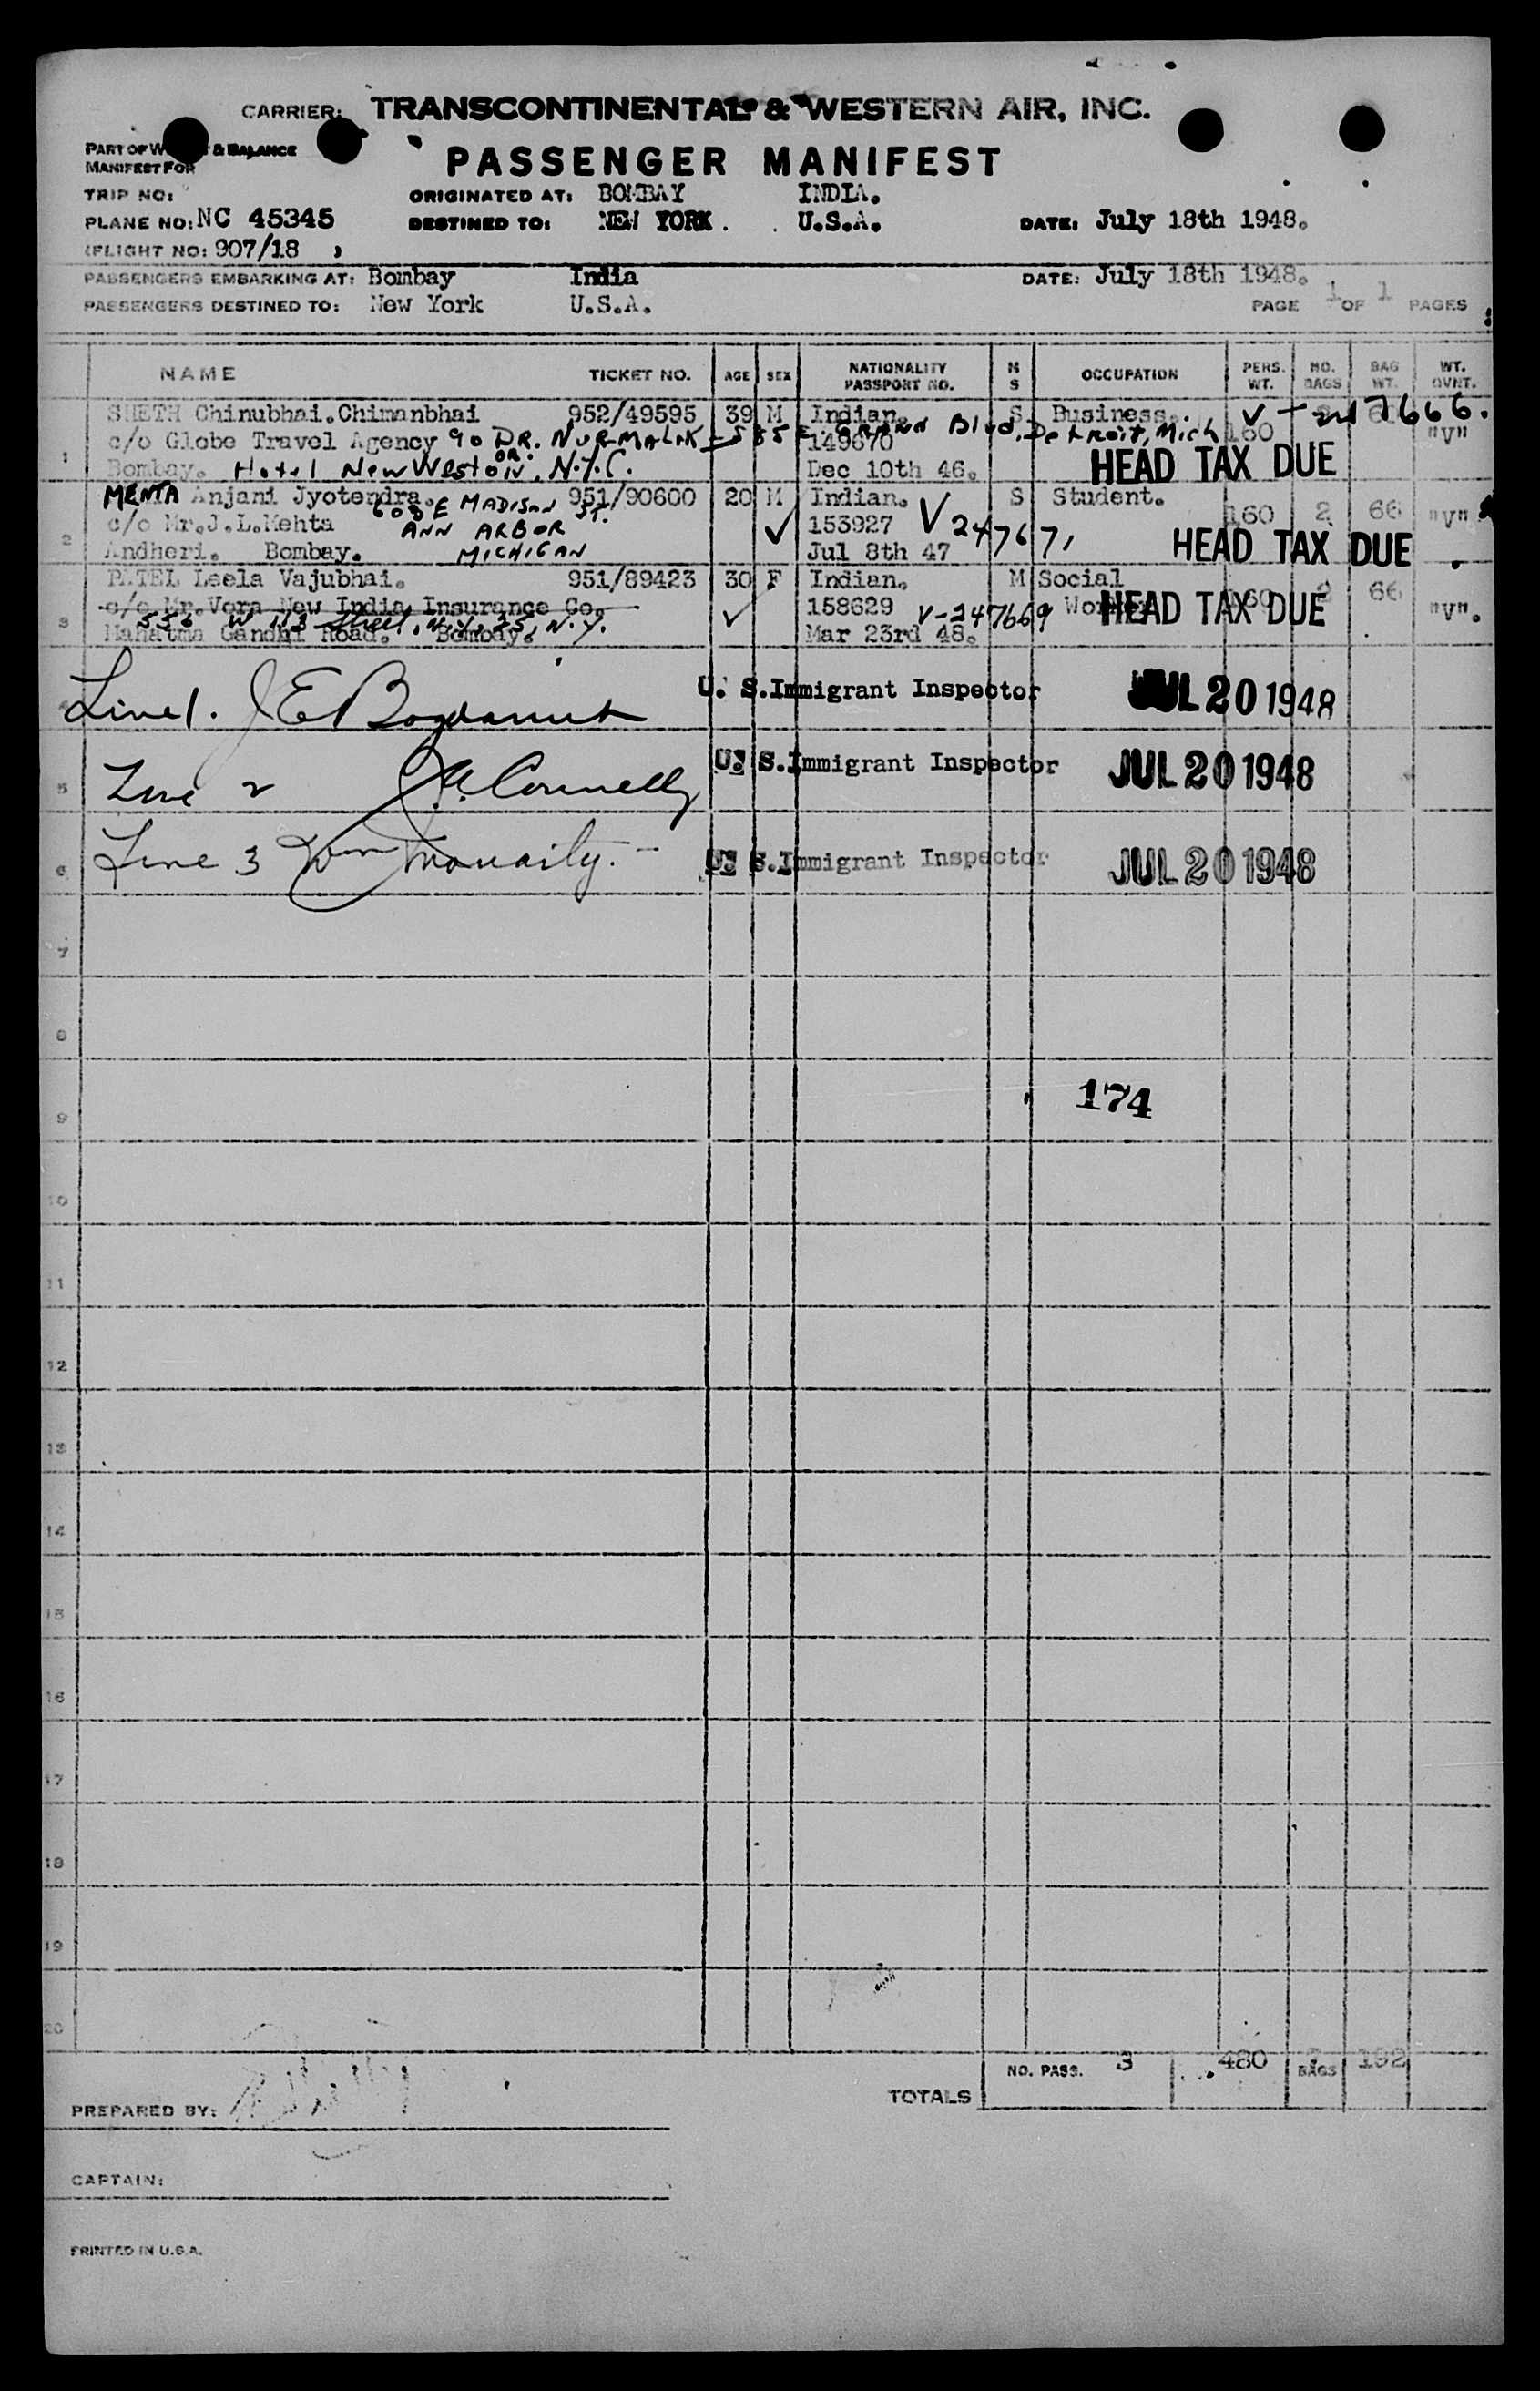 CARRIER: TRANSCONTINENTAL & WESTERN AIR, INC.
PART OF W & BALANCE
MANIFEST FOR
PASSENGER MANIFEST
TRIP NO: ORIGINATED AT: BOMBAY INDIA.
PLANE NO: NC 45345 DESTINED TO: NEW YORK. U.S.A. DATE: July 18th 1948.
(FLIGHT NO: 907/18 )
PASSENGERS EMBARKING AT: Bombay India DATE: July 18th 1948.
PASSENGERS DESTINED TO: New York U.S.A. PAGE 1 OF 1 PAGES
NAME TICKET NO. AGE SEX NATIONALITY PASSPORT NO. M S OCCUPATION PERS. WT. NO. BAGS BAG WT. WT. OVNT.
SHETH Chinubhai.Chimanbhai 952/49595 39 M Indian. S Business. V- 7666.
c/o Globe Travel Agency 90 DR. NURMALIK - 585 E. GRAND Blvd. Detroit, Mich 149670 160 "V"
1 Bombay. Hotel New Weston, N.Y.C. OR. Dec 10th 46. HEAD TAX DUE
MEHTA Anjani Jyotendra. 951/90600 20 M Indian. S Student.
608 E MADISON ST.
c/o Mr.J.L.Mehta ANN ARBOR 153927 V 247671 160 2 66 "V"
2 Andheri. Bombay. MICHIGAN Jul 8th 47 HEAD TAX DUE
PATEL Leela Vajubhai. 951/89423 30 F Indian. M Social 2 66
c/o Mr.Vora New India Insurance Co. 158629 V-247669 Worker HEAD TAX DUE 160 "V".
556 W 113 Street, N.Y. 25, N.Y.
3 Mahatma Gandhi Road. Bombay. Mar 23rd 48.
4 Line 1. U. S. Immigrant Inspector JUL 20 1948
5 Line 2 J.A. Connelly U. S. Immigrant Inspector JUL 20 1948
6 Line 3 Wm U. S. Immigrant Inspector JUL 20 1948
7
8
9 174
10
11
12
13
14
15
16
17
18
19
20
TOTALS NO. PASS. 3 480 BAGS 192
PREPARED BY:
CAPTAIN:
PRINTED IN U.S.A.